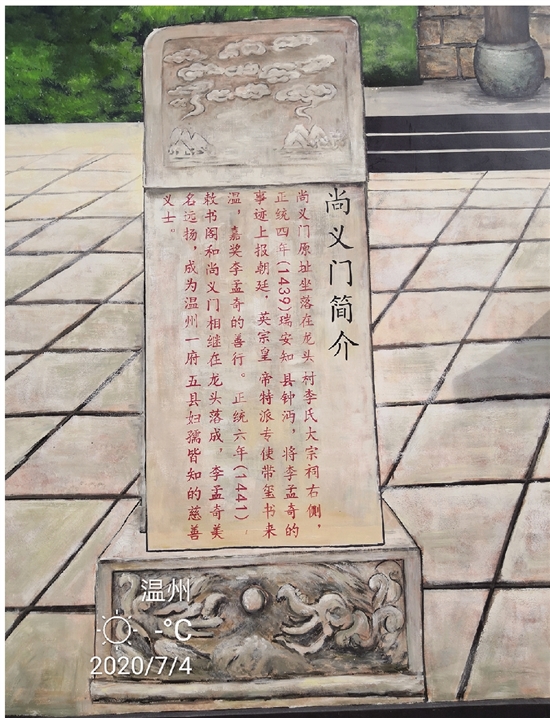 尚义门简介
尚义门原址坐落在龙头村李氏大宗祠右侧，
正统四年(1439)瑞安知县钟沔，将李孟奇的
事迹上报朝廷，英宗皇帝特派专使带玺书来
温，嘉奖李孟奇的善行。正统六年(1441)
敕书阁和尚义门相继在龙头落成，李孟奇美
名远扬，成为温州一府五县妇孺皆知的慈善
义士”
温州
-°C
2020/7/4